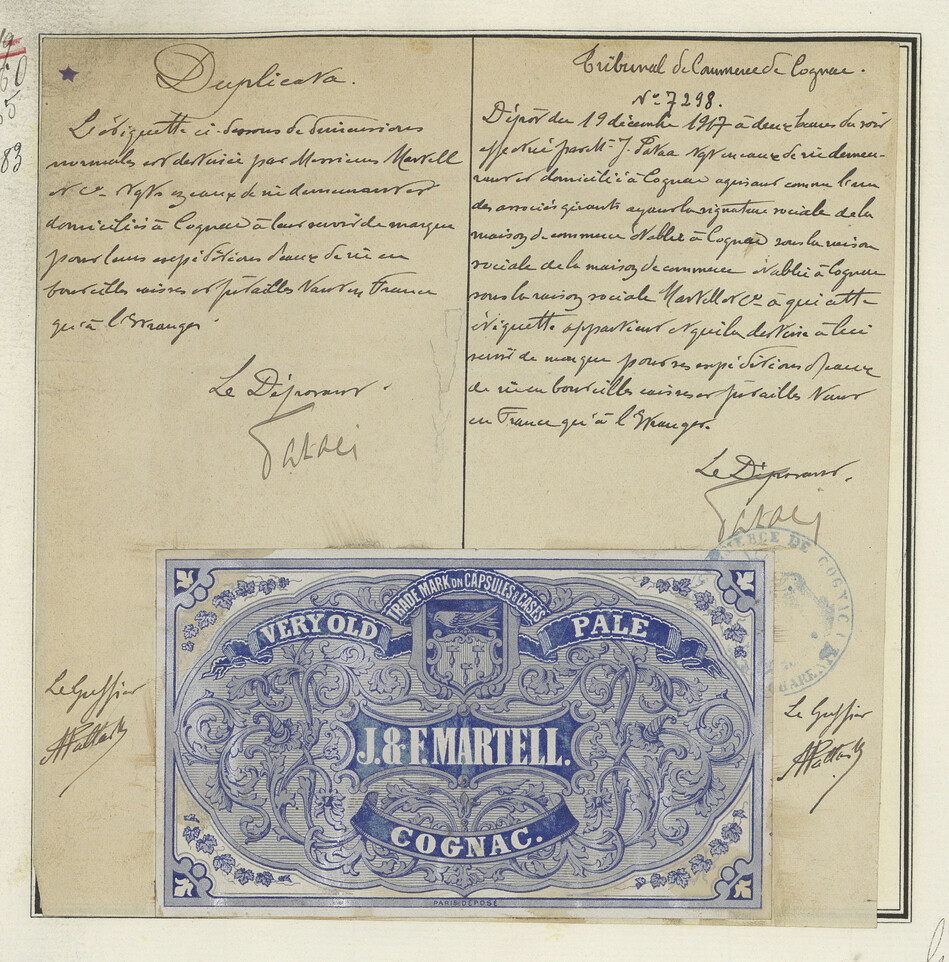 Duplicata.
L'étiquette ci-dessous de dimensions
normales est destinée par Messieurs Martell
& Cº. Ngts en eaux de vie demeurant et
domiciliés à Cognac à leur servir de marque
pour leurs expéditions d'eaux de vie en
bouteilles caisses et futailles tant en France
qu'à l'Etranger.
Le Déposant.
Tribunal de Commerce de Cognac.
Nº 7298.
Dépôt du 19 décembre 1907 à deux heures du soir
effectué par Mr. J. Ngt en eaux de vie demeu-
rant et domicilié à Cognac agissant comme l'un
des associés gérants ayant la signature sociale de la
maison de commerce établie à Cognac sous la raison
sociale de la maison de commerce établie à Cognac
sous la raison sociale Martell & Cº à qui cette
étiquette appartient et qui la destine à lui
servir de marque pour ses expéditions d'eaux
de vie en bouteilles caisses et futailles tant
en France qu'à l'Etranger.
Le Déposant.
COMMERCE DE COGNAC
CHARENTE
TRADE MARK ON CAPSULES & CASES
VERY OLD PALE
J. & F. MARTELL.
COGNAC.
PARIS DÉPOSÉ
Le Greffier
Le Greffier
60
83